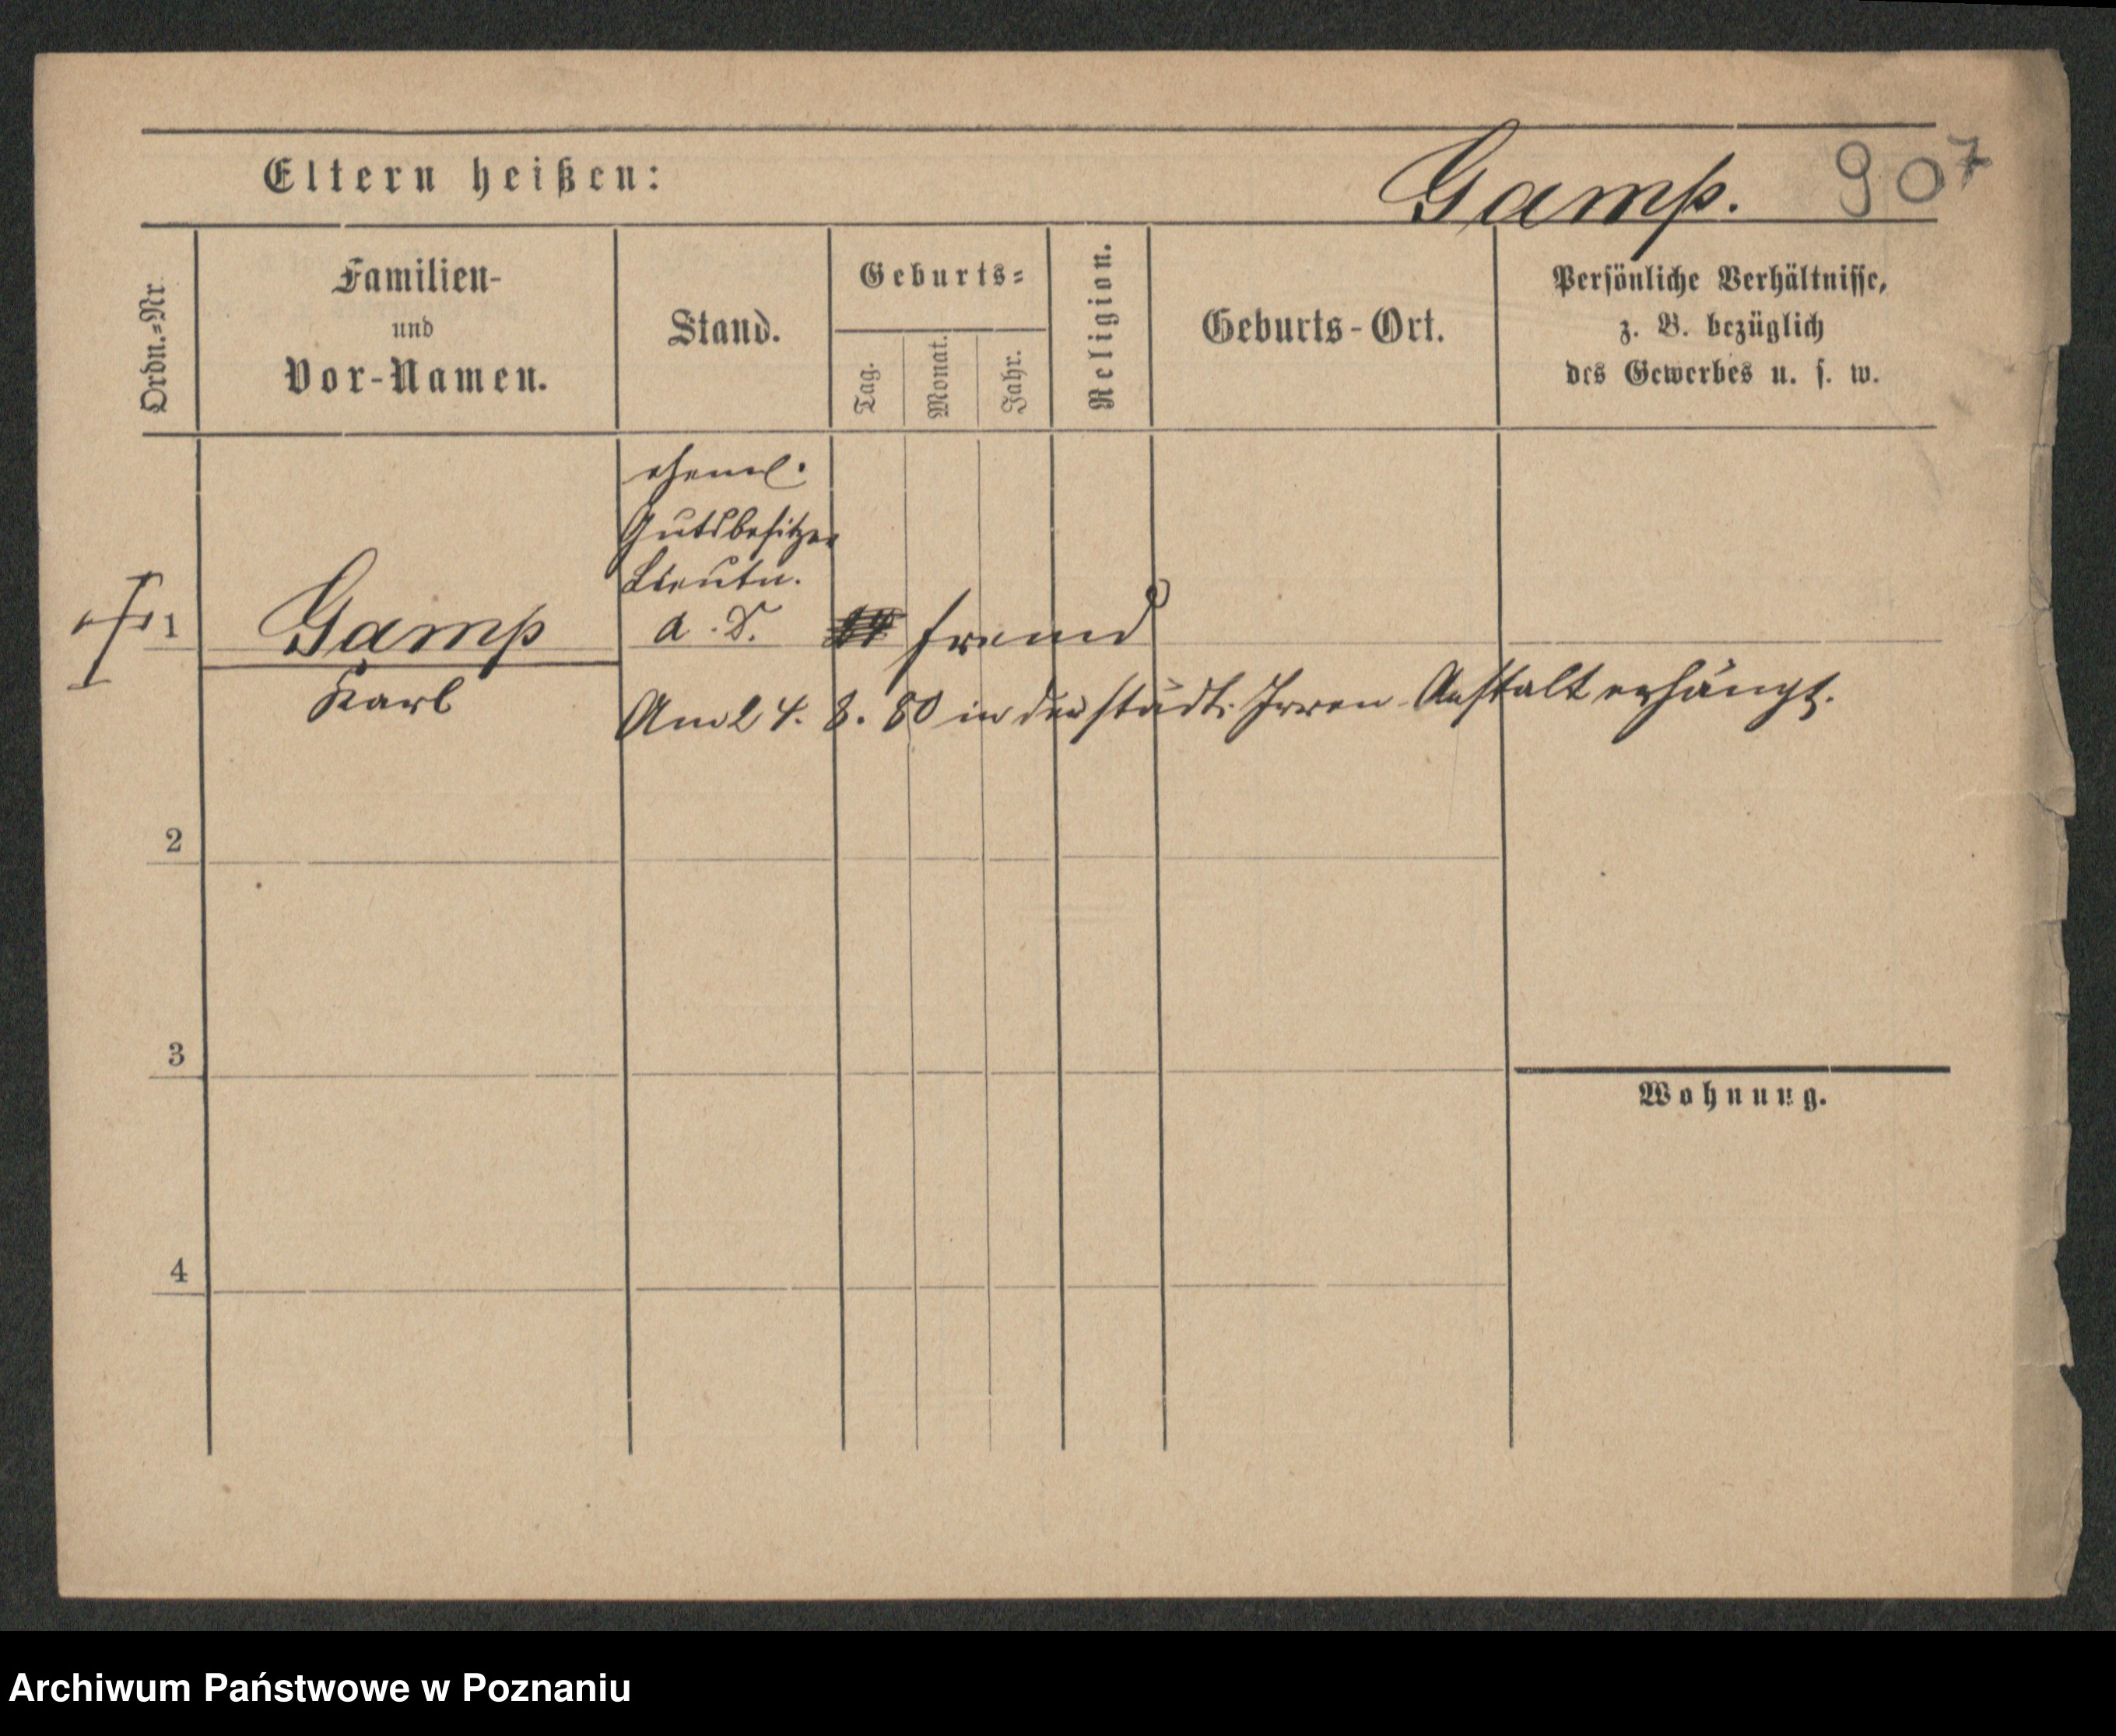 Eltern heißen:
Gamp. 907
Ordn.=Nr.
Familien-
und
Vor-Namen.
Stand.
Geburts=
Tag.
Monat.
Jahr.
Religion.
Geburts-Ort.
Persönliche Verhältnisse,
z. B. bezüglich
des Gewerbes u. s. w.
eheml.
Gutsbesitzer
Lieutn.
1 Gamp a. D. fremd
Karl
Am 24. 8. 80 in der städt. Irren-Anstalt erhängt.
2
3
Wohnung.
4
Archiwum Państwowe w Poznaniu